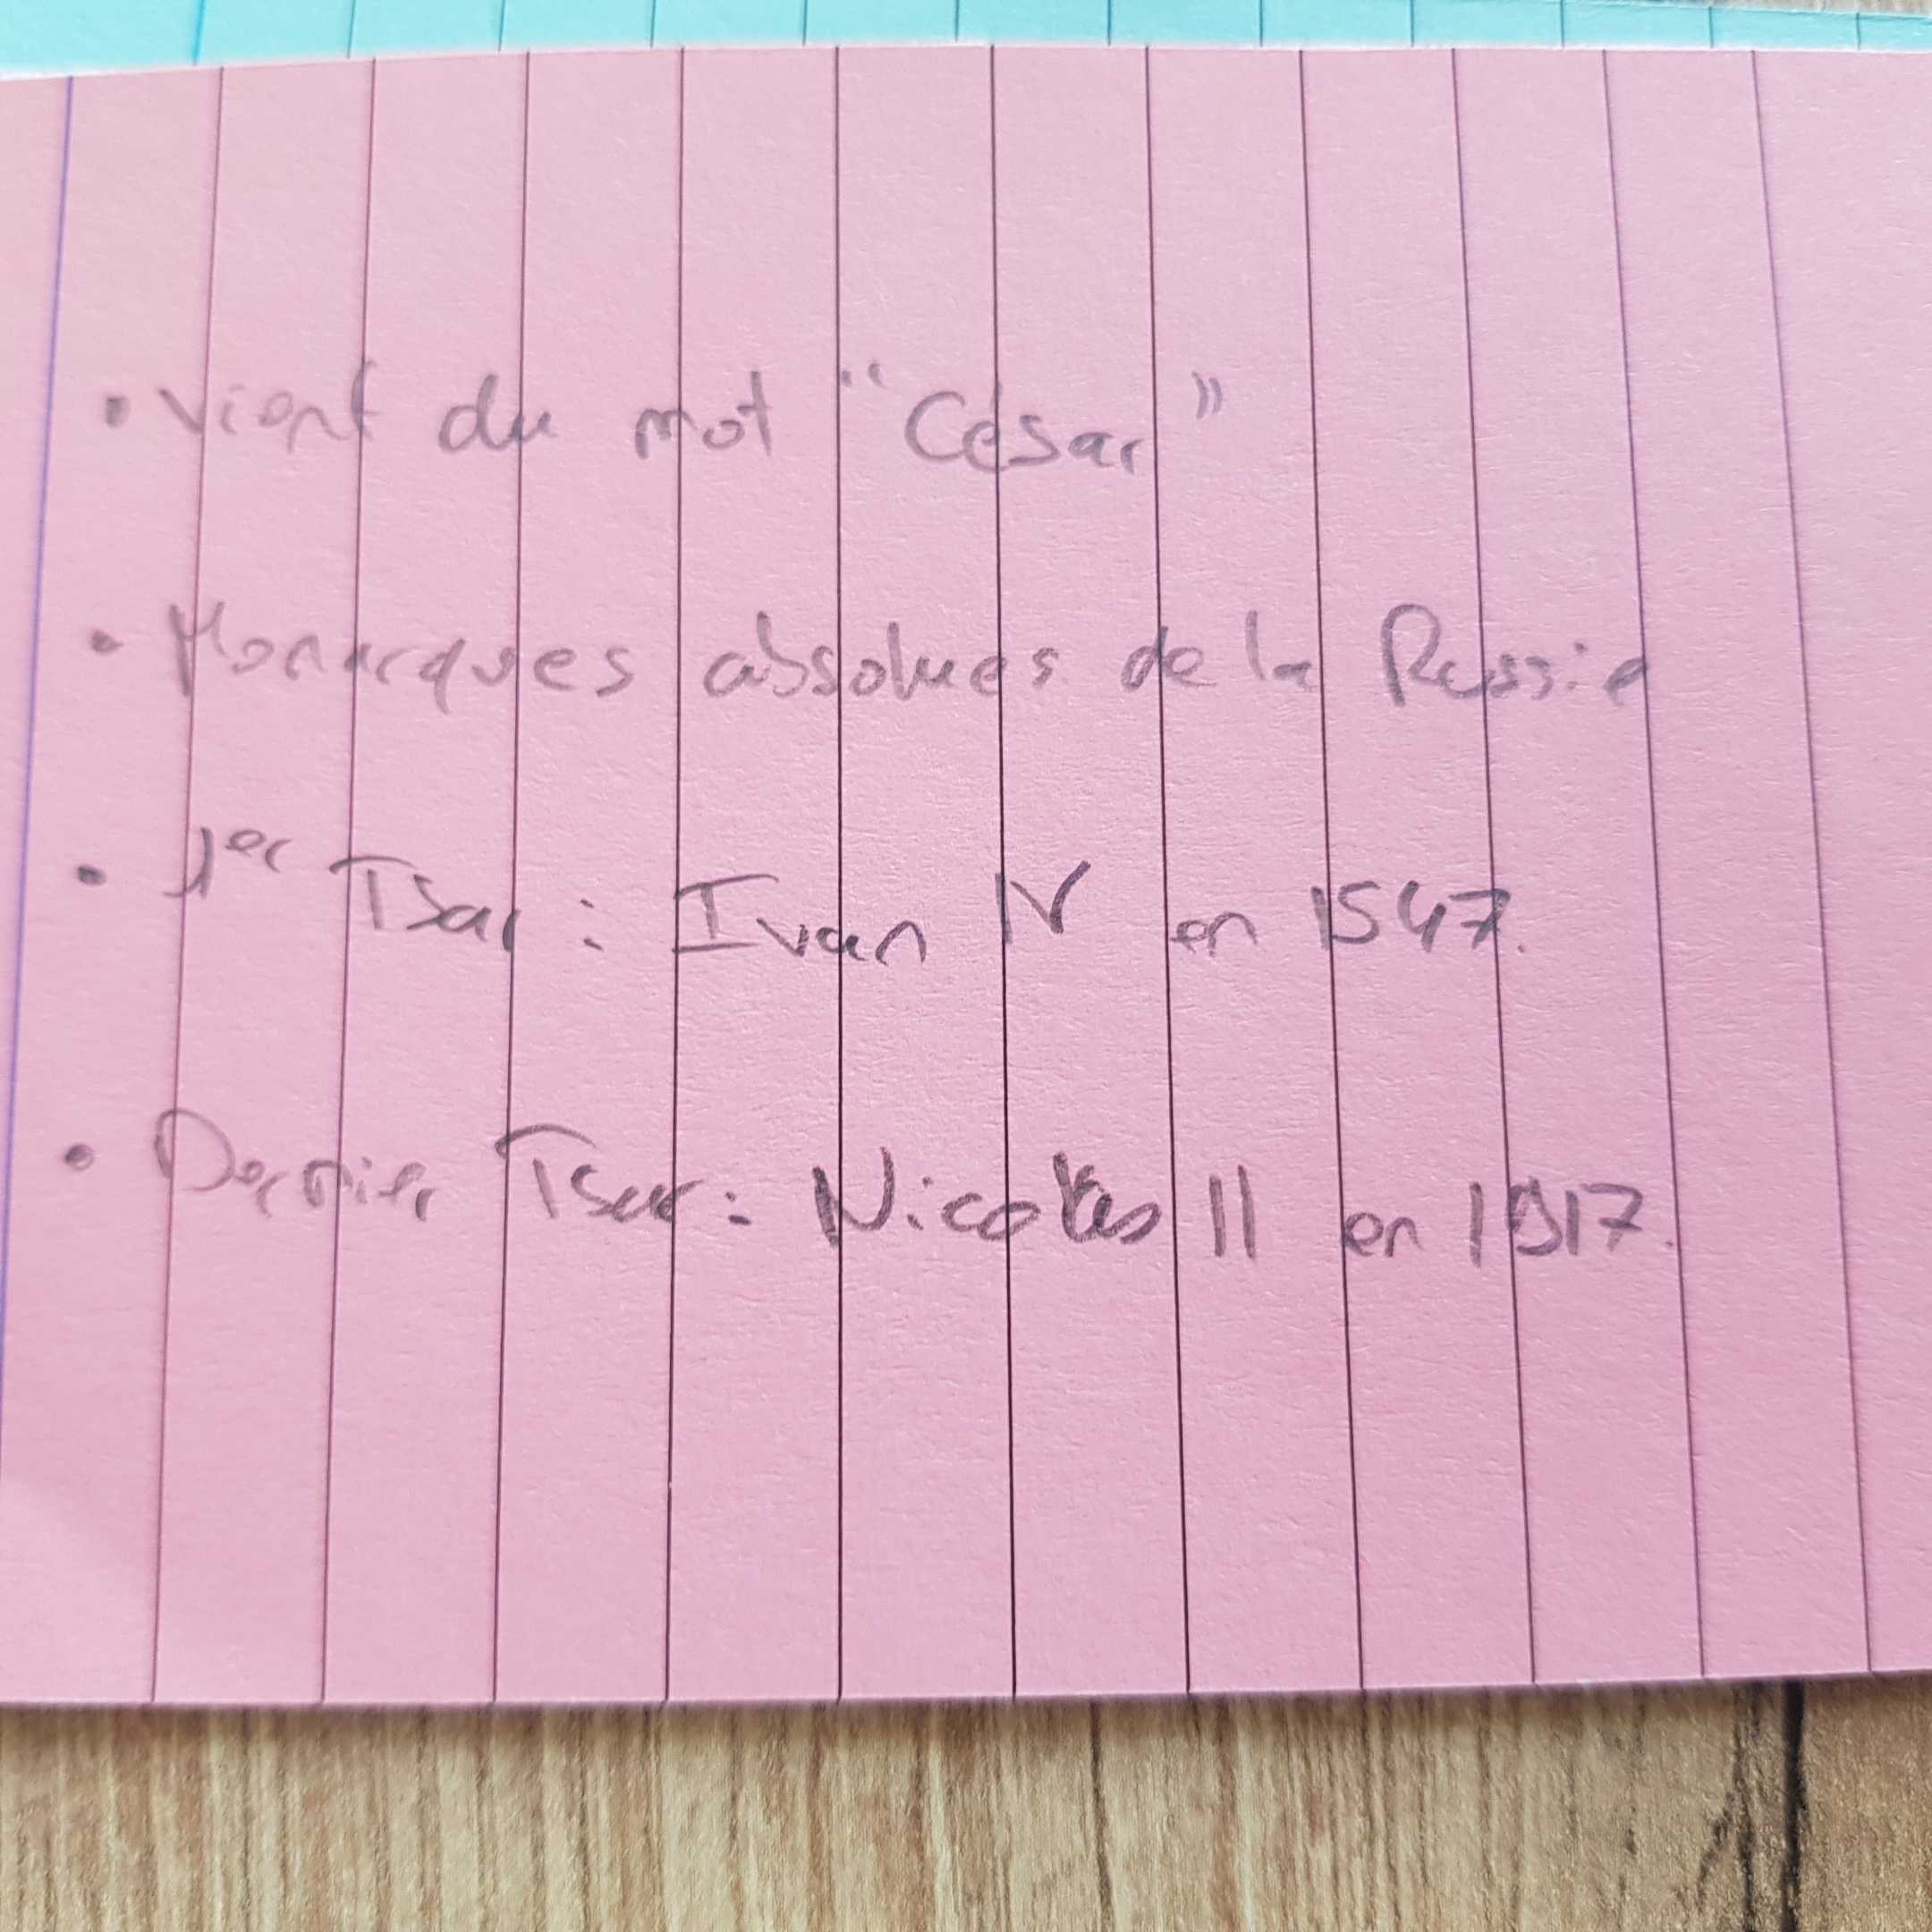 • Vient du mot "César"
• Monarques absolues de la Russie
• 1er Tsar : Ivan IV en 1547.
• Dernier Tsar : Nicolas II en 1917.